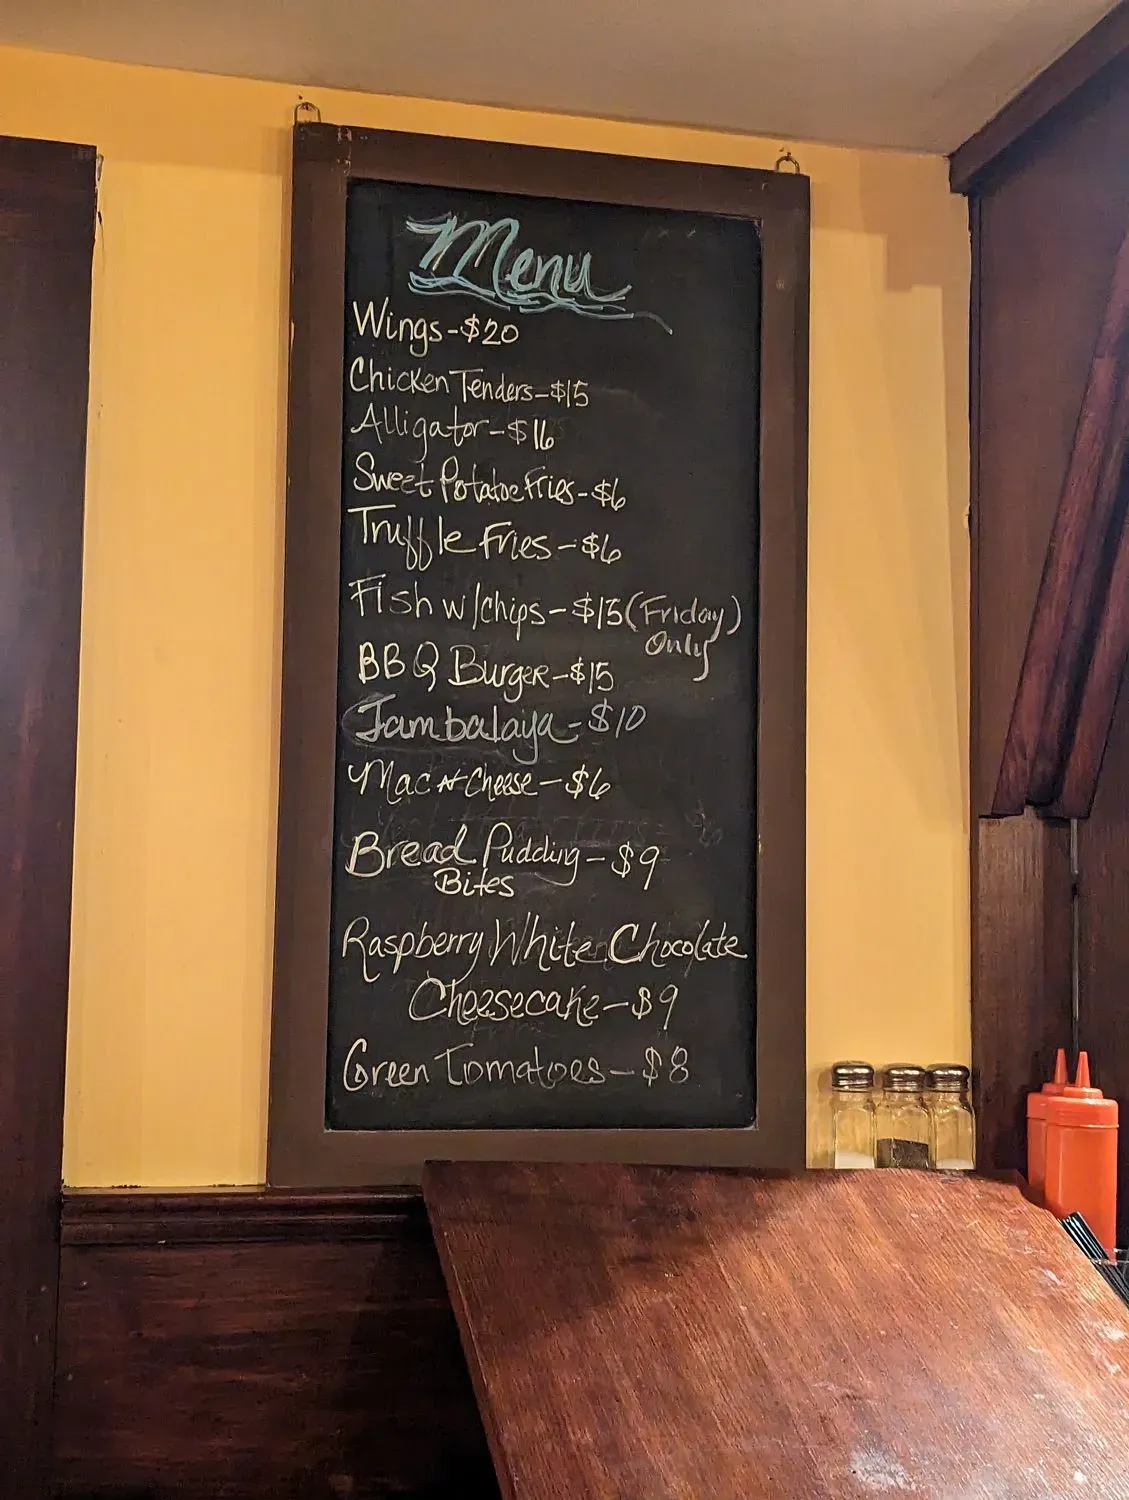 Menu
Wings-$20
Chicken Tenders-$15
Alligator-$16
Sweet Potatoe Fries-$6
Truffle Fries-$6
Fish w/chips-$15 (Friday)
Only
BBQ Burger-$15
Jambalaya-$10
Mac N Cheese-$6
Bread Pudding-$9
Bites
Raspberry White Chocolate
Cheesecake-$9
Green Tomatoes-$8